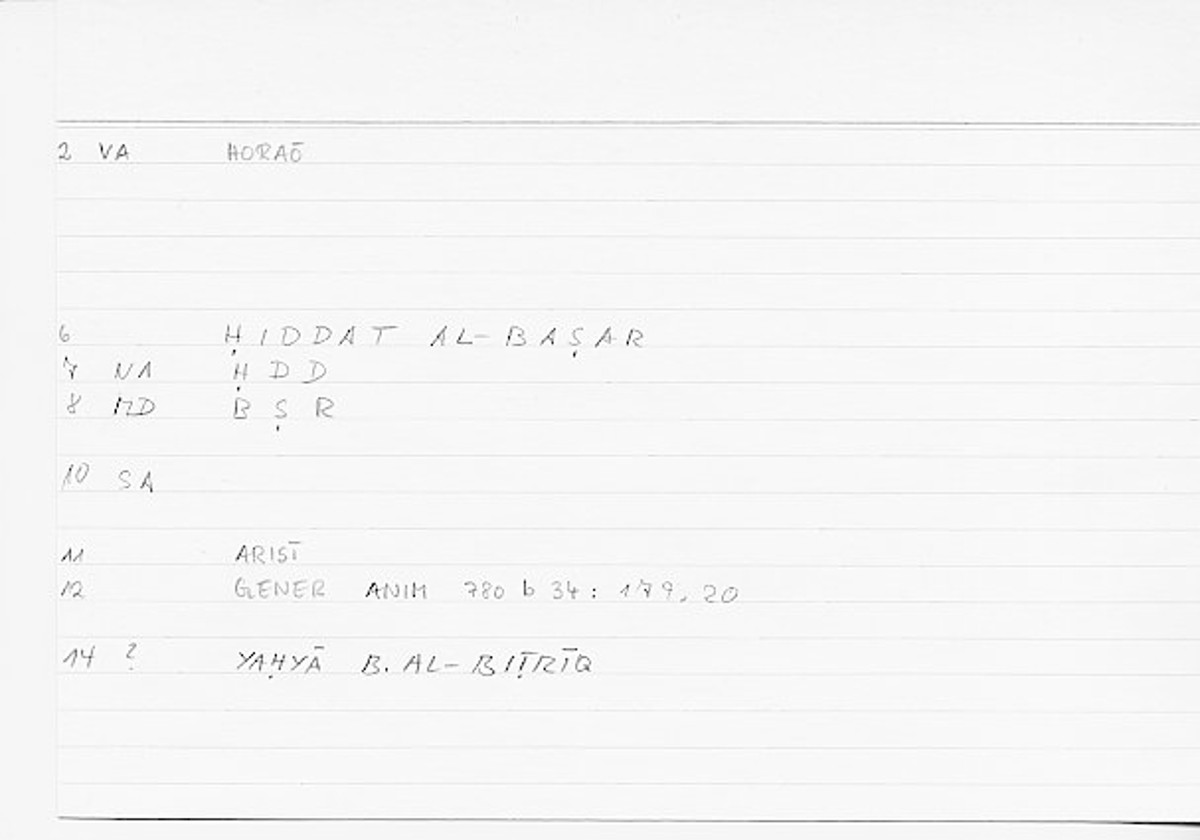 2 VA HORAŌ
6 ḤIDDAT AL-BAṢAR
7 NA ḤDD
8 MD BṢR
10 SA
11 ARIST
12 GENER ANIM 780 b 34: 179, 20
14 ? YAḤYĀ B. AL-BIṬRĪQ